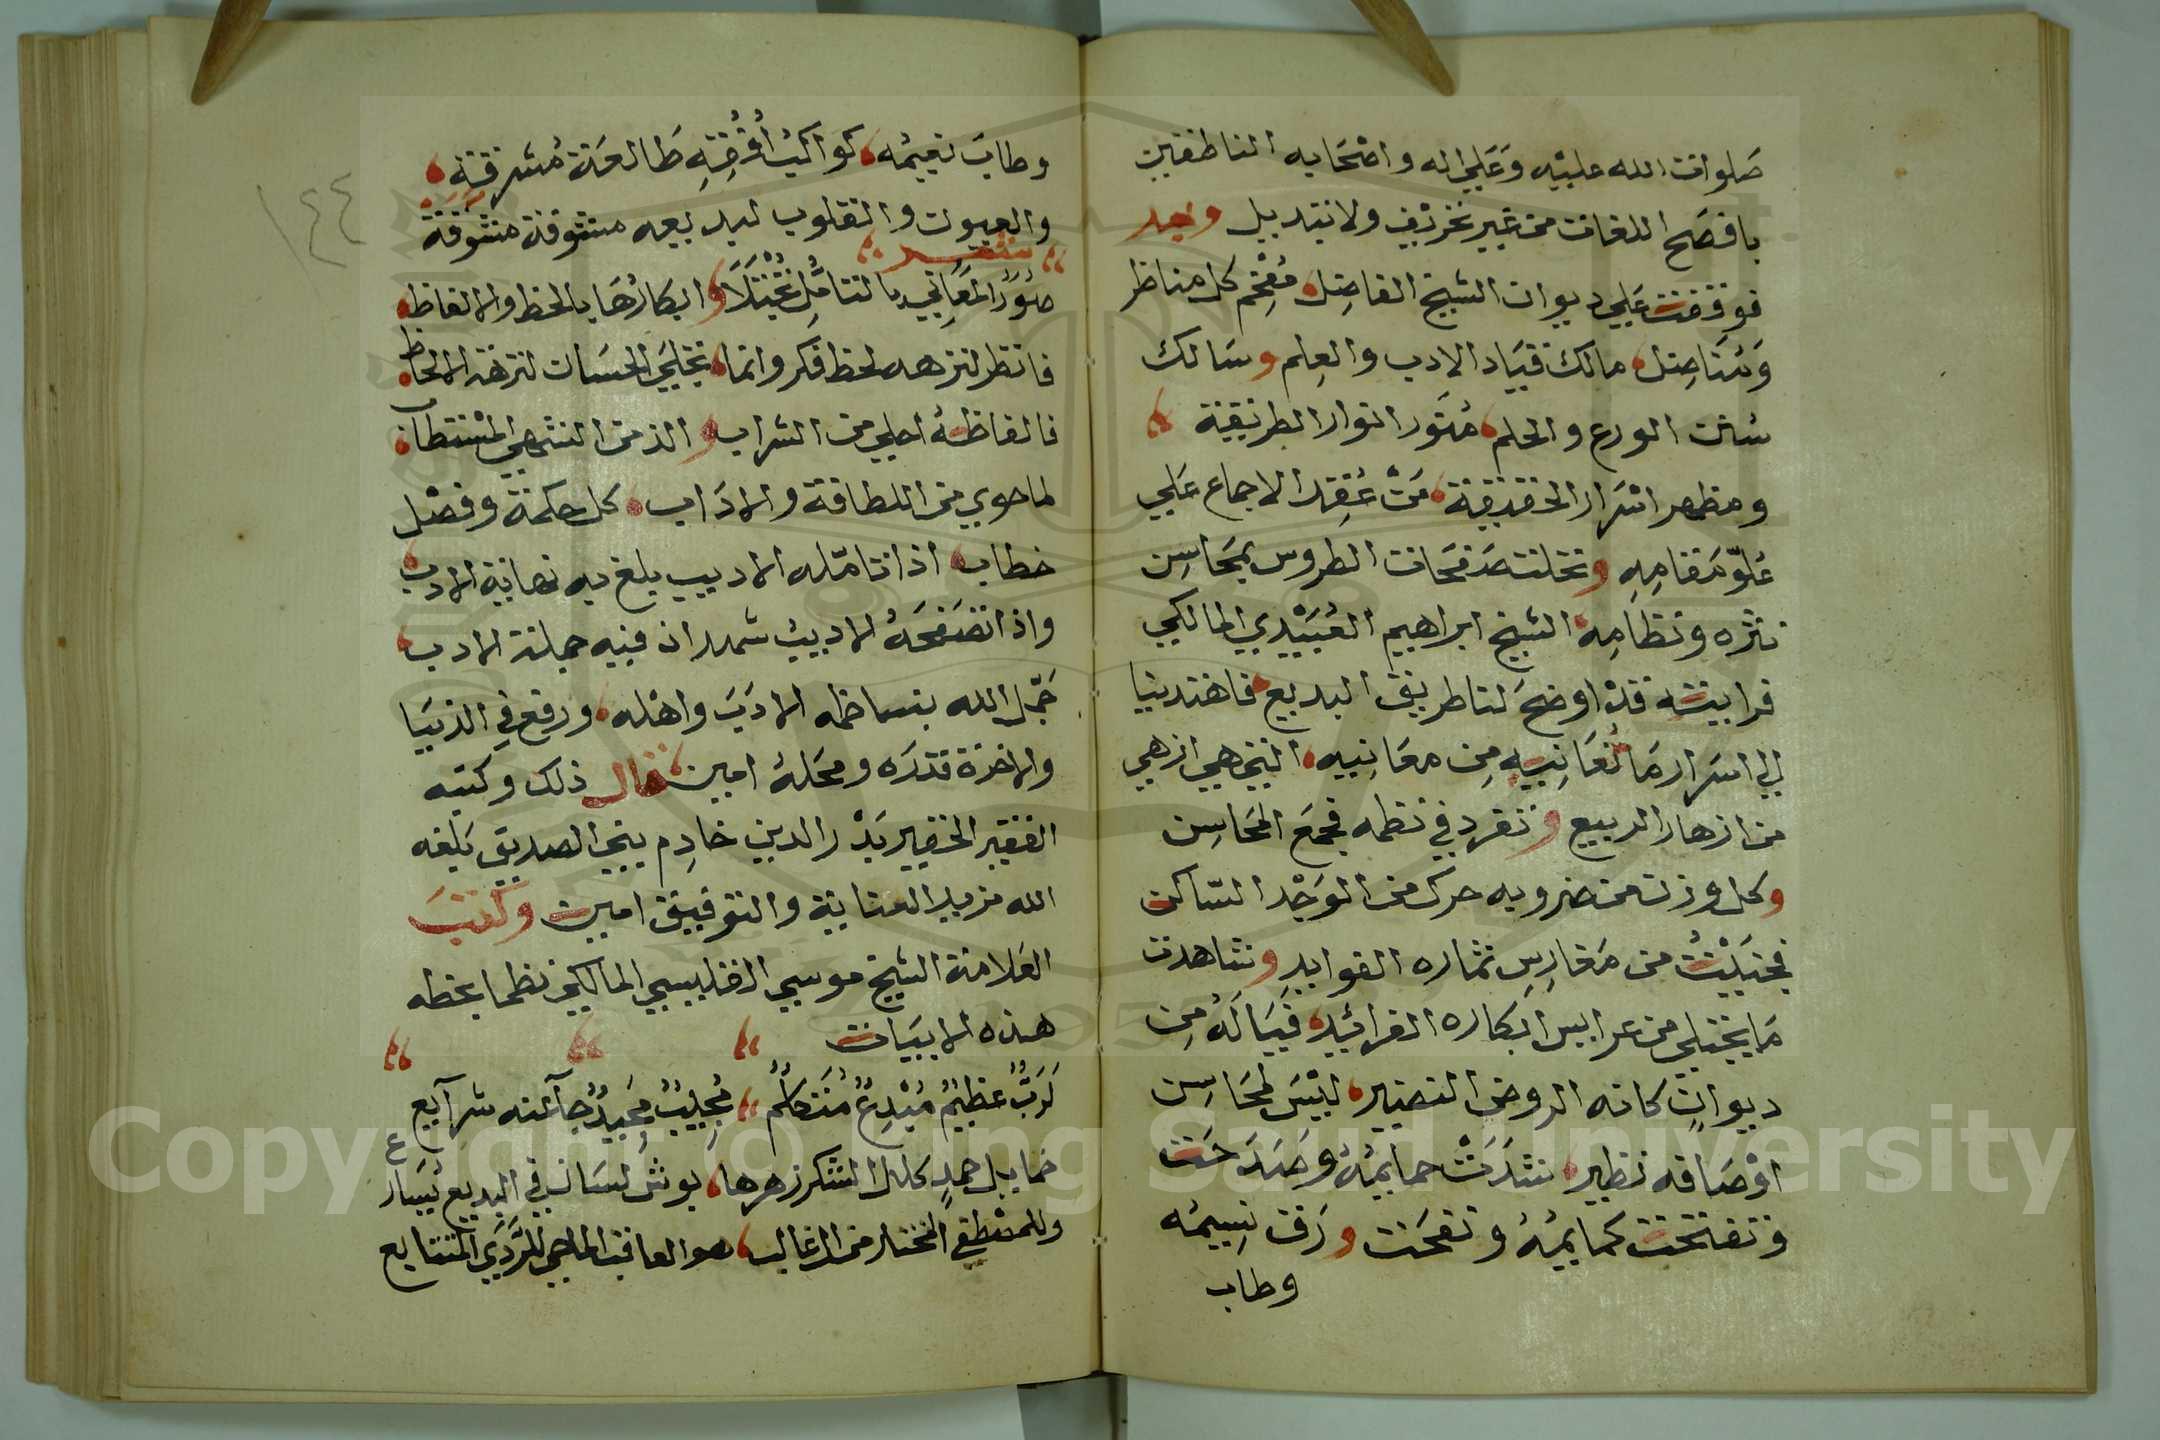 صَلوات الله عليْه وَعَلي اله واصْحَابه الناطقين
بافصَح اللغات من غير تحريف ولا تبديل وبعد
فوقفت عَلي ديوان الشيخ الفاضِل مُفْحِم كل مناظر
وَمُنَاضِل مالك قيَاد الادب والعِلم وسَالك
سُنن الورع والحلم مُنَور انوار الطريقة
ومظهر اسْرَار الحقيقة مَنْ عُقِد الاجماع عَلي
عُلوّ مَقامِهِ وتحلت صَفحَات الطروس بمحَاسِن
نثره ونظامِه الشيخ ابراهيم العُبَيْدي المالكي
فرايته قدْ اوضحَ لنا طريق البديع فاهتدينا
الي اسرار مَا نُعَانِيهِ مِن معَانِيه التي هي ازهي
من ازهار الربيع وتفرد في نظمه فجمعَ المحَاسِن
وكل وزن من ضروبه حرك من الوَجْد السّاكن
فجنَيْتُ من مَغارِسِ ثماره الفوايد وشاهدت
مَا يجتلي من عرايس ابكاره الفرائد فيَالَهُ مِن
ديوانٍ كانه الروض النضير ليْسَ لمحَاسِن
اوْصَافه نظير شدَتْ حمايمُهُ وصَدَحَت
وتفتحت كمايمُهُ ونفحَت ورَق نسِيمُه
وطاب
وطابَ نعيمُه كواكبُ اُفُقِهِ طَالعَة مُشرقة
والعيون والقلوب لبديعه متشوقة متشَوِّقة
شعر
صُوَرُ المعَاني بالتامُّلِ تُجْتَلَا وابكارُهَا بالحظ والالفاظ
فانظر لنزهه لحظ فكر وانما تجلي الحسَان لنزهة الالحاظ
فالفاظهُ احلي من الشراب والذ من الشهي المسْتطاب
لما حوي من اللطافة والادَاب كل حكمة وفصْل
خطاب اذا تامّله الاديب بلغ به نهاية الادب
واذا تصَفحَهُ الاديبُ شهد ان فيه جملة الادب
جَمّل الله بناظمه الادَبَ واهْله ورفع في الدنيَا
والاخرة قدرَه ومحَلهُ امين قال ذلك وكتبه
الفقير الحقير بَدْر الدين خادِم بني الصديق بَلغه
الله مزيد العناية والتوفيق امين وكتبَ
العَلامة الشيخ موسي القليبي المالكي نظما بخطه
هذه الابيَات
لَرَبٌّ عظيْمٌ مُبْدِعٌ مُتَكلِّمٌ مُجِيبٌ مجَيدٌ جآءته شرآيع
خمايل حمدٍ كلل الشكر زهرها بوشي لسَان في البديع يُسَارع
وللمصْطفي المختار من ال غالب هو العاقب الماحي للرَّدَي المتتابع
١٤٤